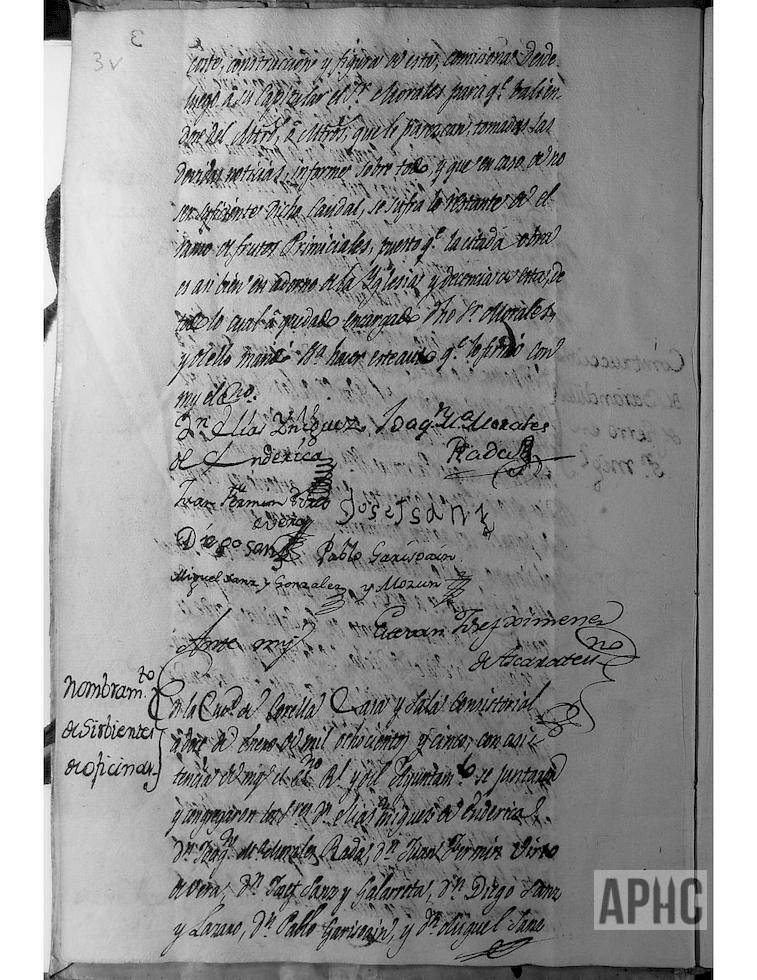 3v
coste, construccion y figura de estos, comisionar desde
luego a su Capitular el Sr. Morales para qe. valien-
dose del Mtro. ô Mtros. que le parezcan, tomadas las
devidas noticias, informe sobre todo, y que en caso de no
ser suficiente dicho Caudal, se supla lo restante de el
ramo de frutos Primiciales, puesto qe. la citada obra
es asi bien en adorno de la Yglesia, y decencia de esta; de
todo lo cual â quedado encargado dho Sr. Morales,
y de ello mandó Sa. hacer este auto qe. lo firmó con
my el Sno.
Dn. Elias Yñiguez Joaqn. Ma. Morales
de Enderica Rada
Juan Fermin Virto
de Vera Josef Sanz
Diego Sanz Pablo Garispain
Miguel Sanz y Gonzalez y Morun
Ante my Ximenez
de Ascarate
Nombramto.
de Sirbientes
de oficinas
En la Ciud. de Corella Casa y Sala Consistorial
a doce de enero de mil ochocientos y cinco, con asis-
tencia de my el Sno. Rl. y del Ayuntamto. se juntaron
y congregaron los Sres. Dn. Elias Yñiguez de Enderica,
Dn. Joaqn. de Morales Rada, Dn. Juan Fermin Virto
de Vera, Dn. Josef Sanz y Galarreta, Dn. Diego Sanz
y Lazaro, Dn. Pablo Garispain, y Dn. Miguel Sanz
APHC